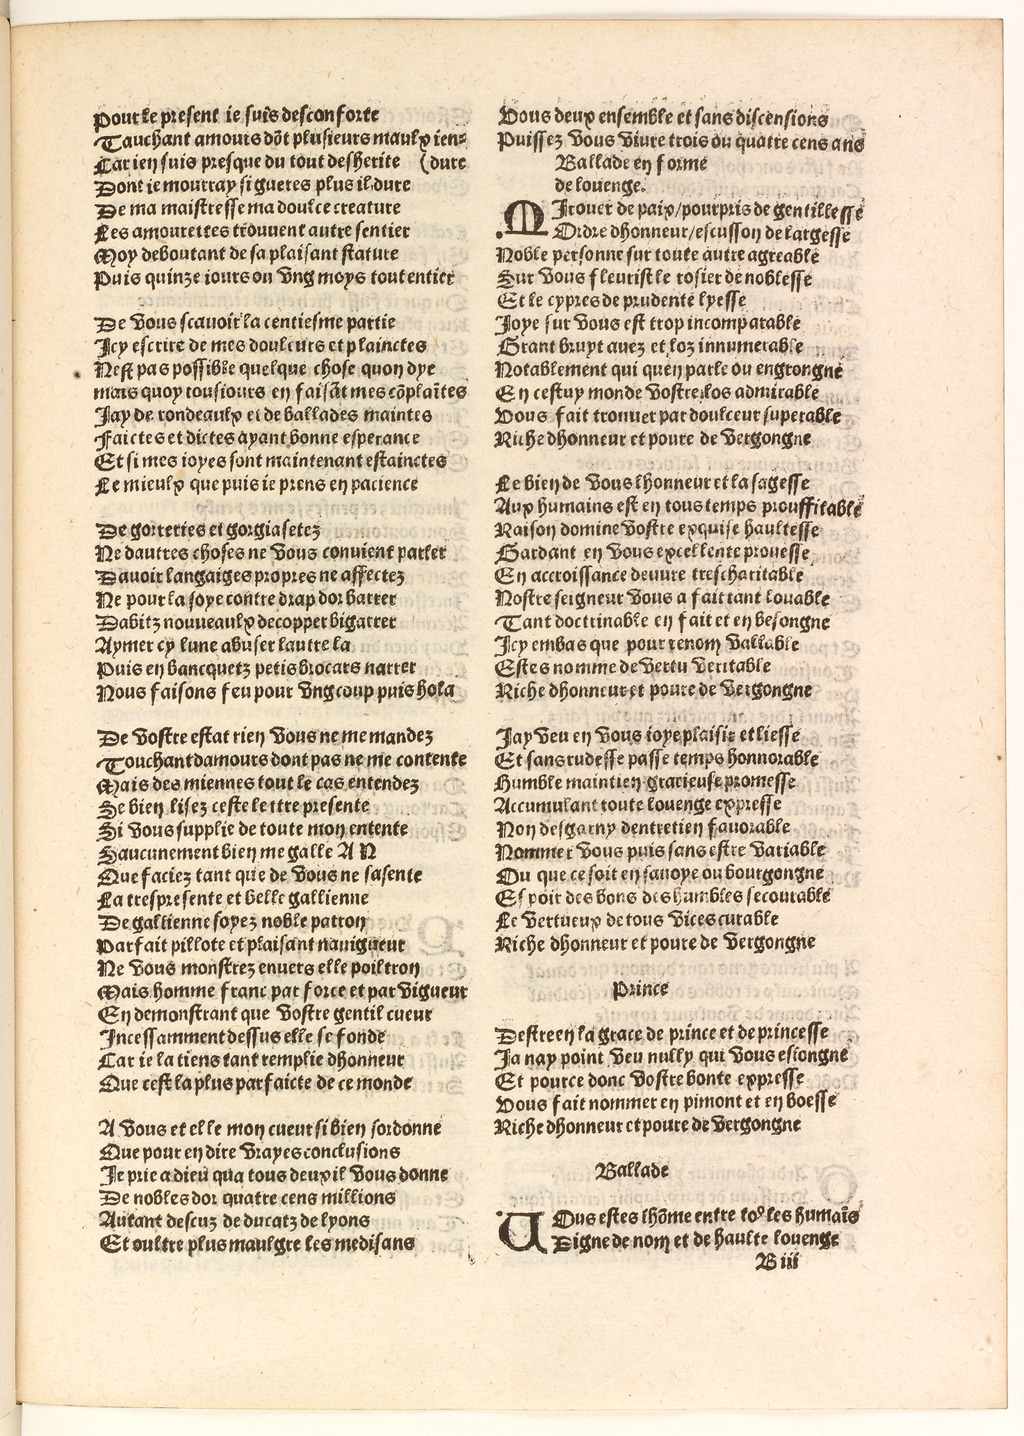 Pour le present ie suis desconforte
Touchant amours dõt plusieurs maulx ien-
Car ien suis presque du tout desherite (dure
Dont ie mourray si gueres plus il dure
De ma maistresse ma doulce creature
Les amourettes trouuent autre sentier
Moy deboutant de sa plaisant stature
Puis quinze iours ou vng moys tout entier

De vous scauoir la centiesme partie
Icy escrire de mes douleurs et plainctes
Nest pas possible quelque chose quon dye
mais quoy tousiours en faisãt mes cõplaĩtes
Jay de rondeaulx et de ballades maintes
Faictes et dictes ayant bonne esperance
Et si mes ioyes sont maintenant estainctes
Le mieulx que puis ie prens en pacience

De gorreries et gorgiasetez
Ne dautres choses ne vous conuient parler
Dauoir langaiges propres ne affectez
Ne pour la soye contre drap dor barrer
Dabitz nouueaulx decopper bigarrer
Aymer cy lune abuser lautre la
Puis en bancquetz petis brocars narrer
Nous faisons feu pour vng coup puis hola

De vostre estat rien vous ne me mandez
Touchant damours dont pas ne me contente
Mais des miennes tout le cas entendez
Se bien lisez ceste lettre presente
Si vous supplie de toute mon entente
Saucunement bien me galle A N
Que faciez tant que de vous ne sasente
La trespresente et belle gallienne
De gallienne soyez noble patron
Parfait pillote et plaisant nauigueur
Ne vous monstrez enuers elle poiltron
Mais homme franc par force et par vigueur
En demonstrant que vostre gentil cueur
Incessamment dessus elle se fonde
Car ie la tiens tant remplie dhonneur
Que cest la plus parfaicte de ce monde

A vous et elle mon cueur si bien sordonne
Que pour en dire vrayes conclusions
Je prie a dieu qua tous deux il vous donne
De nobles dor quatre cens millions
Autant descuz de ducatz de lyons
Et oultre plus maulgre les medisans
Vous deux ensemble et sans discensions
Puissez vous viure trois ou quatre cens ans
Ballade en forme
de louenge.
MIrouer de paix/pourpris de gentillesse
Ordre dhonneur/escusson de largesse
Noble personne sur toute autre agreable
Sur vous fleurist le rosier de noblesse
Et le cypres de prudente lyesse
Joye sur vous est trop incomparable
Grant bruyt auez et loz innumerable
Notablement qui quen parle ou engrongne
En cestuy monde vostre los admirable
Vous fait trouuer par doulceur superable
Riche dhonneur et poure de vergongne

Le bien de vous lhonneur et la sagesse
Aux humains est en tous temps prouffitable
Raison domine vostre exquise haultesse
Gardant en vous excellente prouesse
En accroissance deuure trescharitable
Nostre seigneur vous a fait tant louable
Tant doctrinable en fait et en besongne
Icy embas que pour renom vallable
Estes nomme de vertu veritable
Riche dhonneur et poure de vergongne

Jay veu en vous ioye plaisir et liesse
Et sans rudesse passe temps honnorable
Humble maintien gracieuse promesse
Accumulant toute louenge expresse
Non desgarny dentretien fauorable
Nommer vous puis sans estre variable
Ou que ce soit en sauoye ou bourgongne
Espoir des bons des humbles secourable
Le vertueux de tous vices curable
Riche dhonneur et poure de vergongne

Prince

Destre en la grace de prince et de princesse
Ja nay point veu nully qui vous eslongne
Et pource donc vostre bonte expresse
Vous fait nommer en pimont et en boesse
Riche dhonneur et poure de vergongne

Ballade

VOus estes lhõme entre toꝰ les humaĩs
Digne de nom et de haulte louenge
B iii